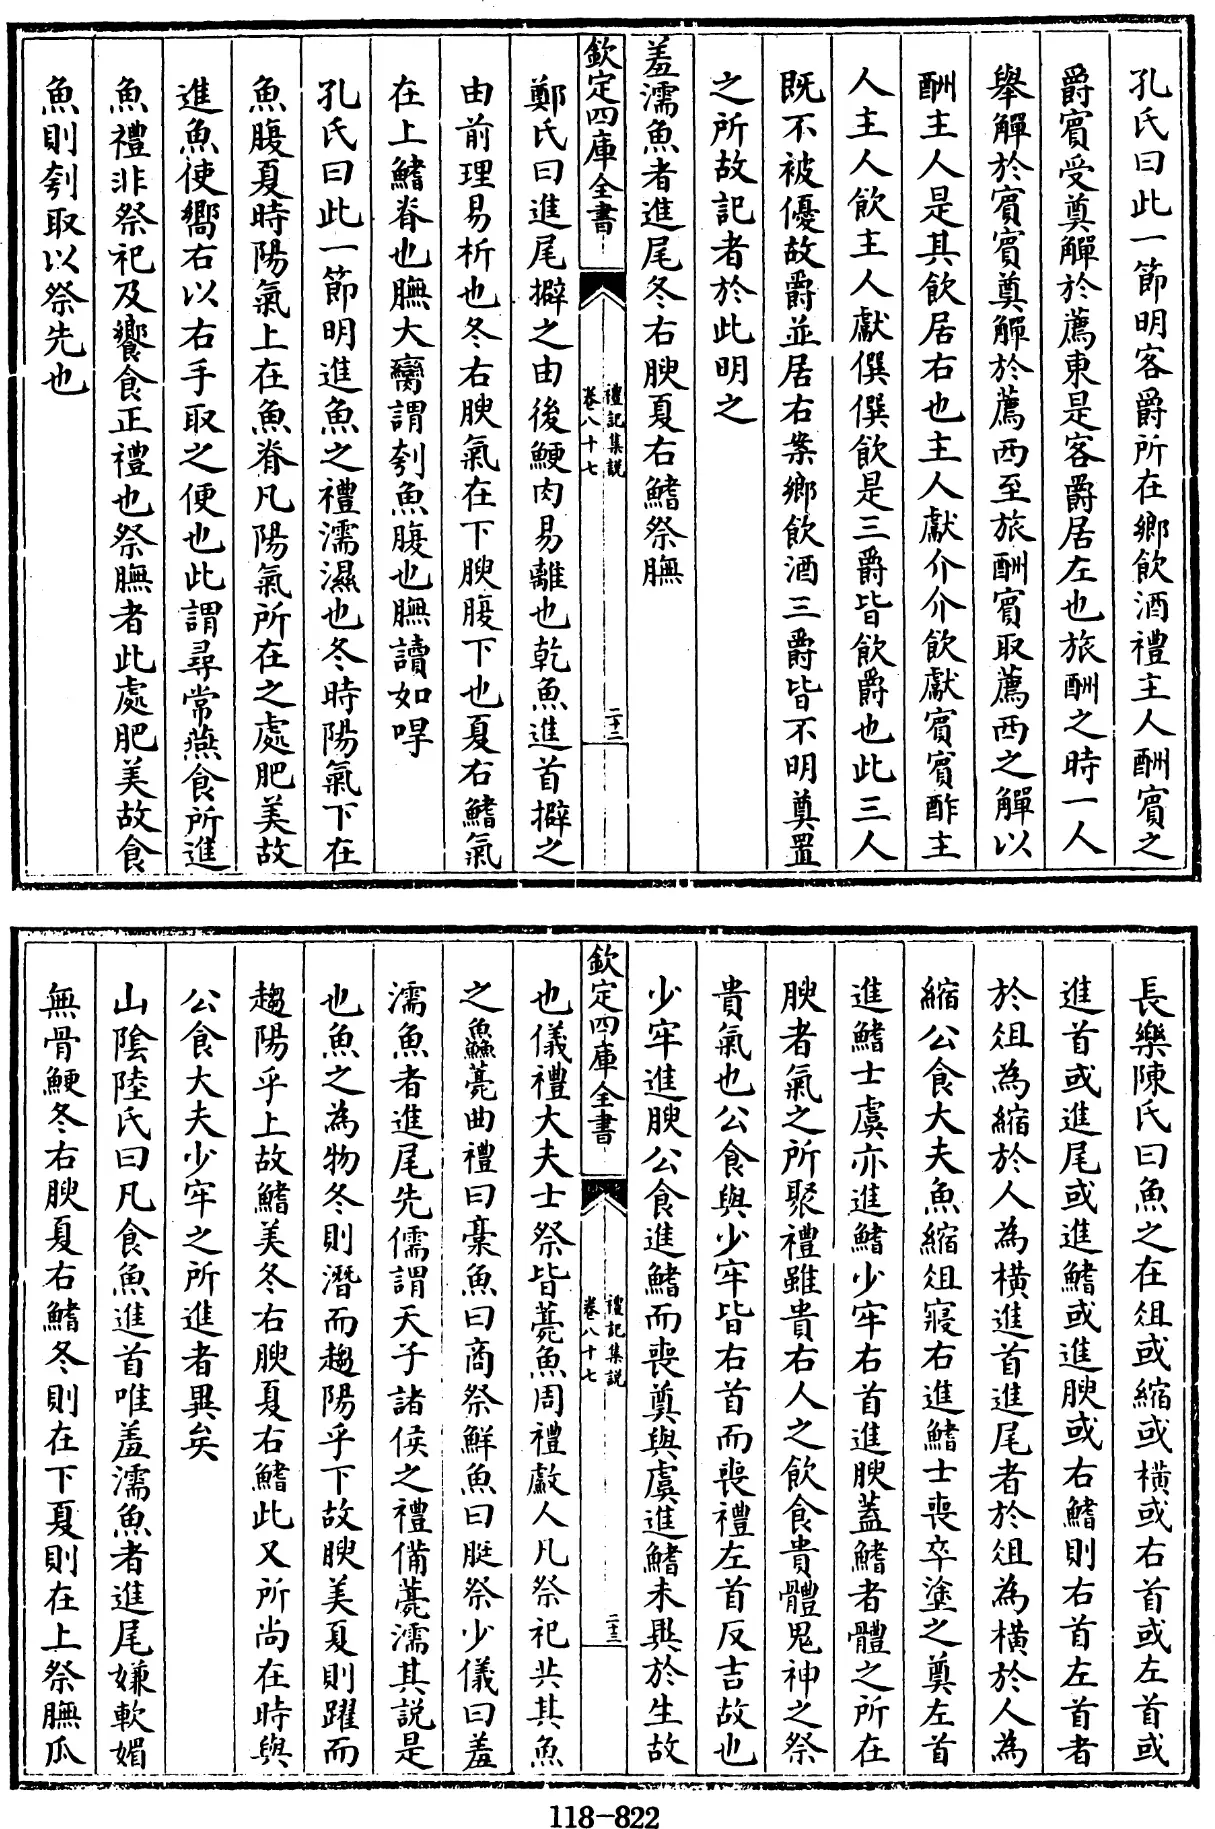 孔氏曰此一節明客爵所在鄉飲酒禮主人酬賓之
爵賓受奠觶於薦東是客爵居左也旅酬之時一人
舉觶於賓賓奠觶於薦西至旅酬賓取薦西之觶以
酬主人是其飲居右也主人獻介介飲獻賓賓酢主
人主人飲主人獻僎僎飲是三爵皆飲爵也此三人
既不被優故爵並居右案鄉飲酒三爵皆不明奠置
之所故記者於此明之
羞濡魚者進尾冬右腴夏右鰭祭膴
欽定四庫全書
禮記集說
卷八十七
二十二
鄭氏曰進尾擗之由後鯁肉易離也乾魚進首擗之
由前理易析也冬右腴氣在下腴腹下也夏右鰭氣
在上鰭脊也膴大臠謂刳魚腹也膴讀如哻
孔氏曰此一節明進魚之禮濡濕也冬時陽氣下在
魚腹夏時陽氣上在魚脊凡陽氣所在之處肥美故
進魚使嚮右以右手取之便也此謂尋常燕食所進
魚禮非祭祀及饗食正禮也祭膴者此處肥美故食
魚則刳取以祭先也
長樂陳氏曰魚之在俎或縮或橫或右首或左首或
進首或進尾或進鰭或進腴或右鰭則右首左首者
於俎為縮於人為橫進首進尾者於俎為橫於人為
縮公食大夫魚縮俎寢右進鰭士喪卒塗之奠左首
進鰭士虞亦進鰭少牢右首進腴蓋鰭者體之所在
腴者氣之所聚禮雖貴右人之飲食貴體鬼神之祭
貴氣也公食與少牢皆右首而喪禮左首反吉故也
少牢進腴公食進鰭而喪奠與虞進鰭未異於生故
欽定四庫全書
禮記集說
卷八十七
二十三
也儀禮大夫士祭皆薧魚周禮䱷人凡祭祀共其魚
之鱻薧曲禮曰槀魚曰商祭鮮魚曰脡祭少儀曰羞
濡魚者進尾先儒謂天子諸侯之禮備薧濡其說是
也魚之為物冬則潛而趨陽乎下故腴美夏則躍而
趨陽乎上故鰭美冬右腴夏右鰭此又所尚在時與
公食大夫少牢之所進者異矣
山陰陸氏曰凡食魚進首唯羞濡魚者進尾嫌軟媚
無骨鯁冬右腴夏右鰭冬則在下夏則在上祭膴瓜
118-822